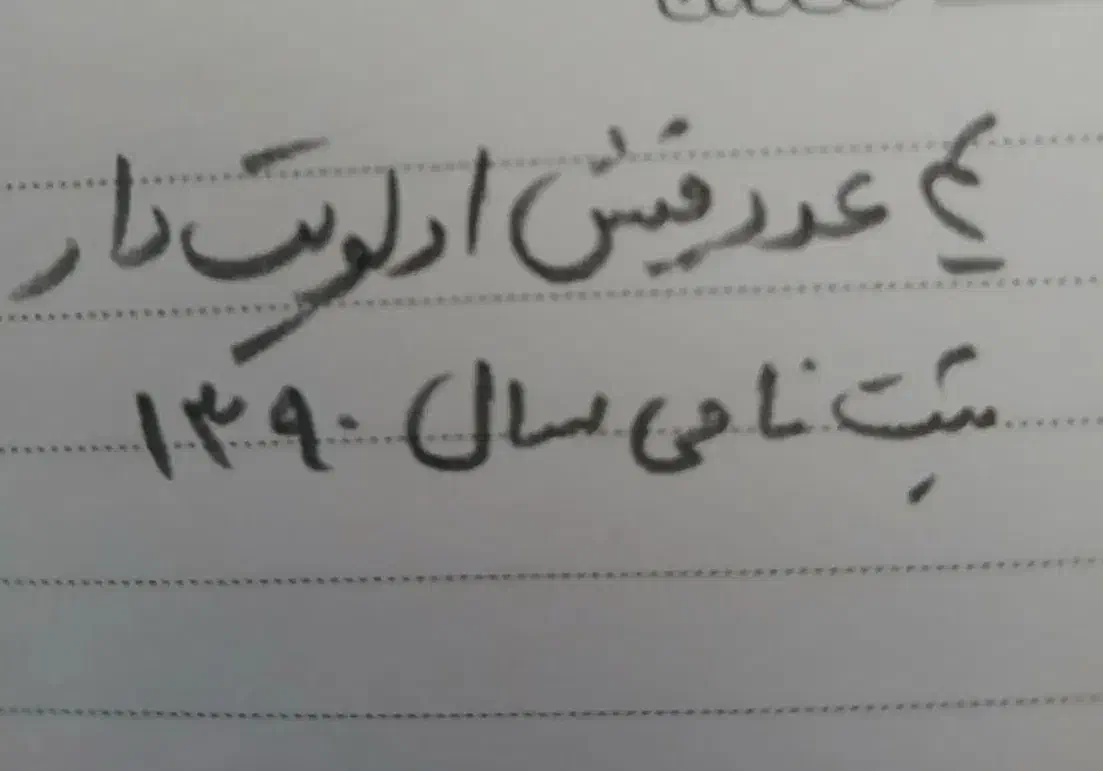 ۴ عدد فیش اولویت دار
ثبت نامی سال ۱۳۹۰